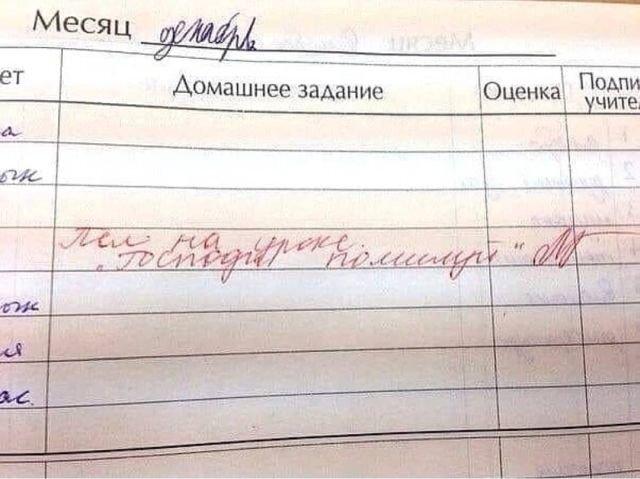 Месяц декабрь
ет Домашнее задание Оценка Подпи учите
а
Пел на уроке
„Господи помилуй"
ия